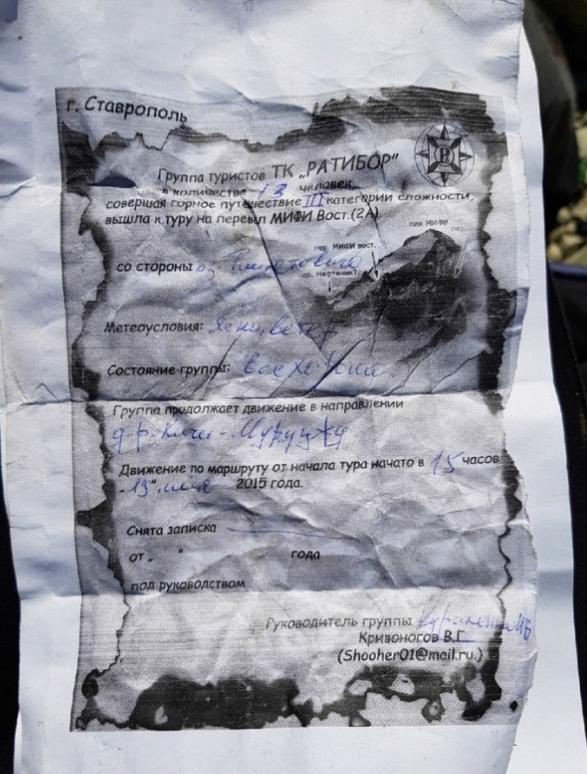 г. Ставрополь
Группа туристов ТК „РАТИБОР"
в количестве 13 человек,
совершая горное путешествие III категории сложности,
вышла к туру на перевал МИФИ Вост.(2А)
пик МИФИ
пер.
пер. МИФИ вост.
пр. Нефтяник?
со стороны
Метеоусловия: Ясно, ветер
Состояние группы:
Группа продолжает движение в направлении
д.р. Кичи-Муруджу
Движение по маршруту от начала тура начато в 15 часов
"19" 2015 года.
Снята записка
от „ " года
под руководством
Руководитель группы
Кривоногов В.Г.
(Shooher01@mail.ru.)